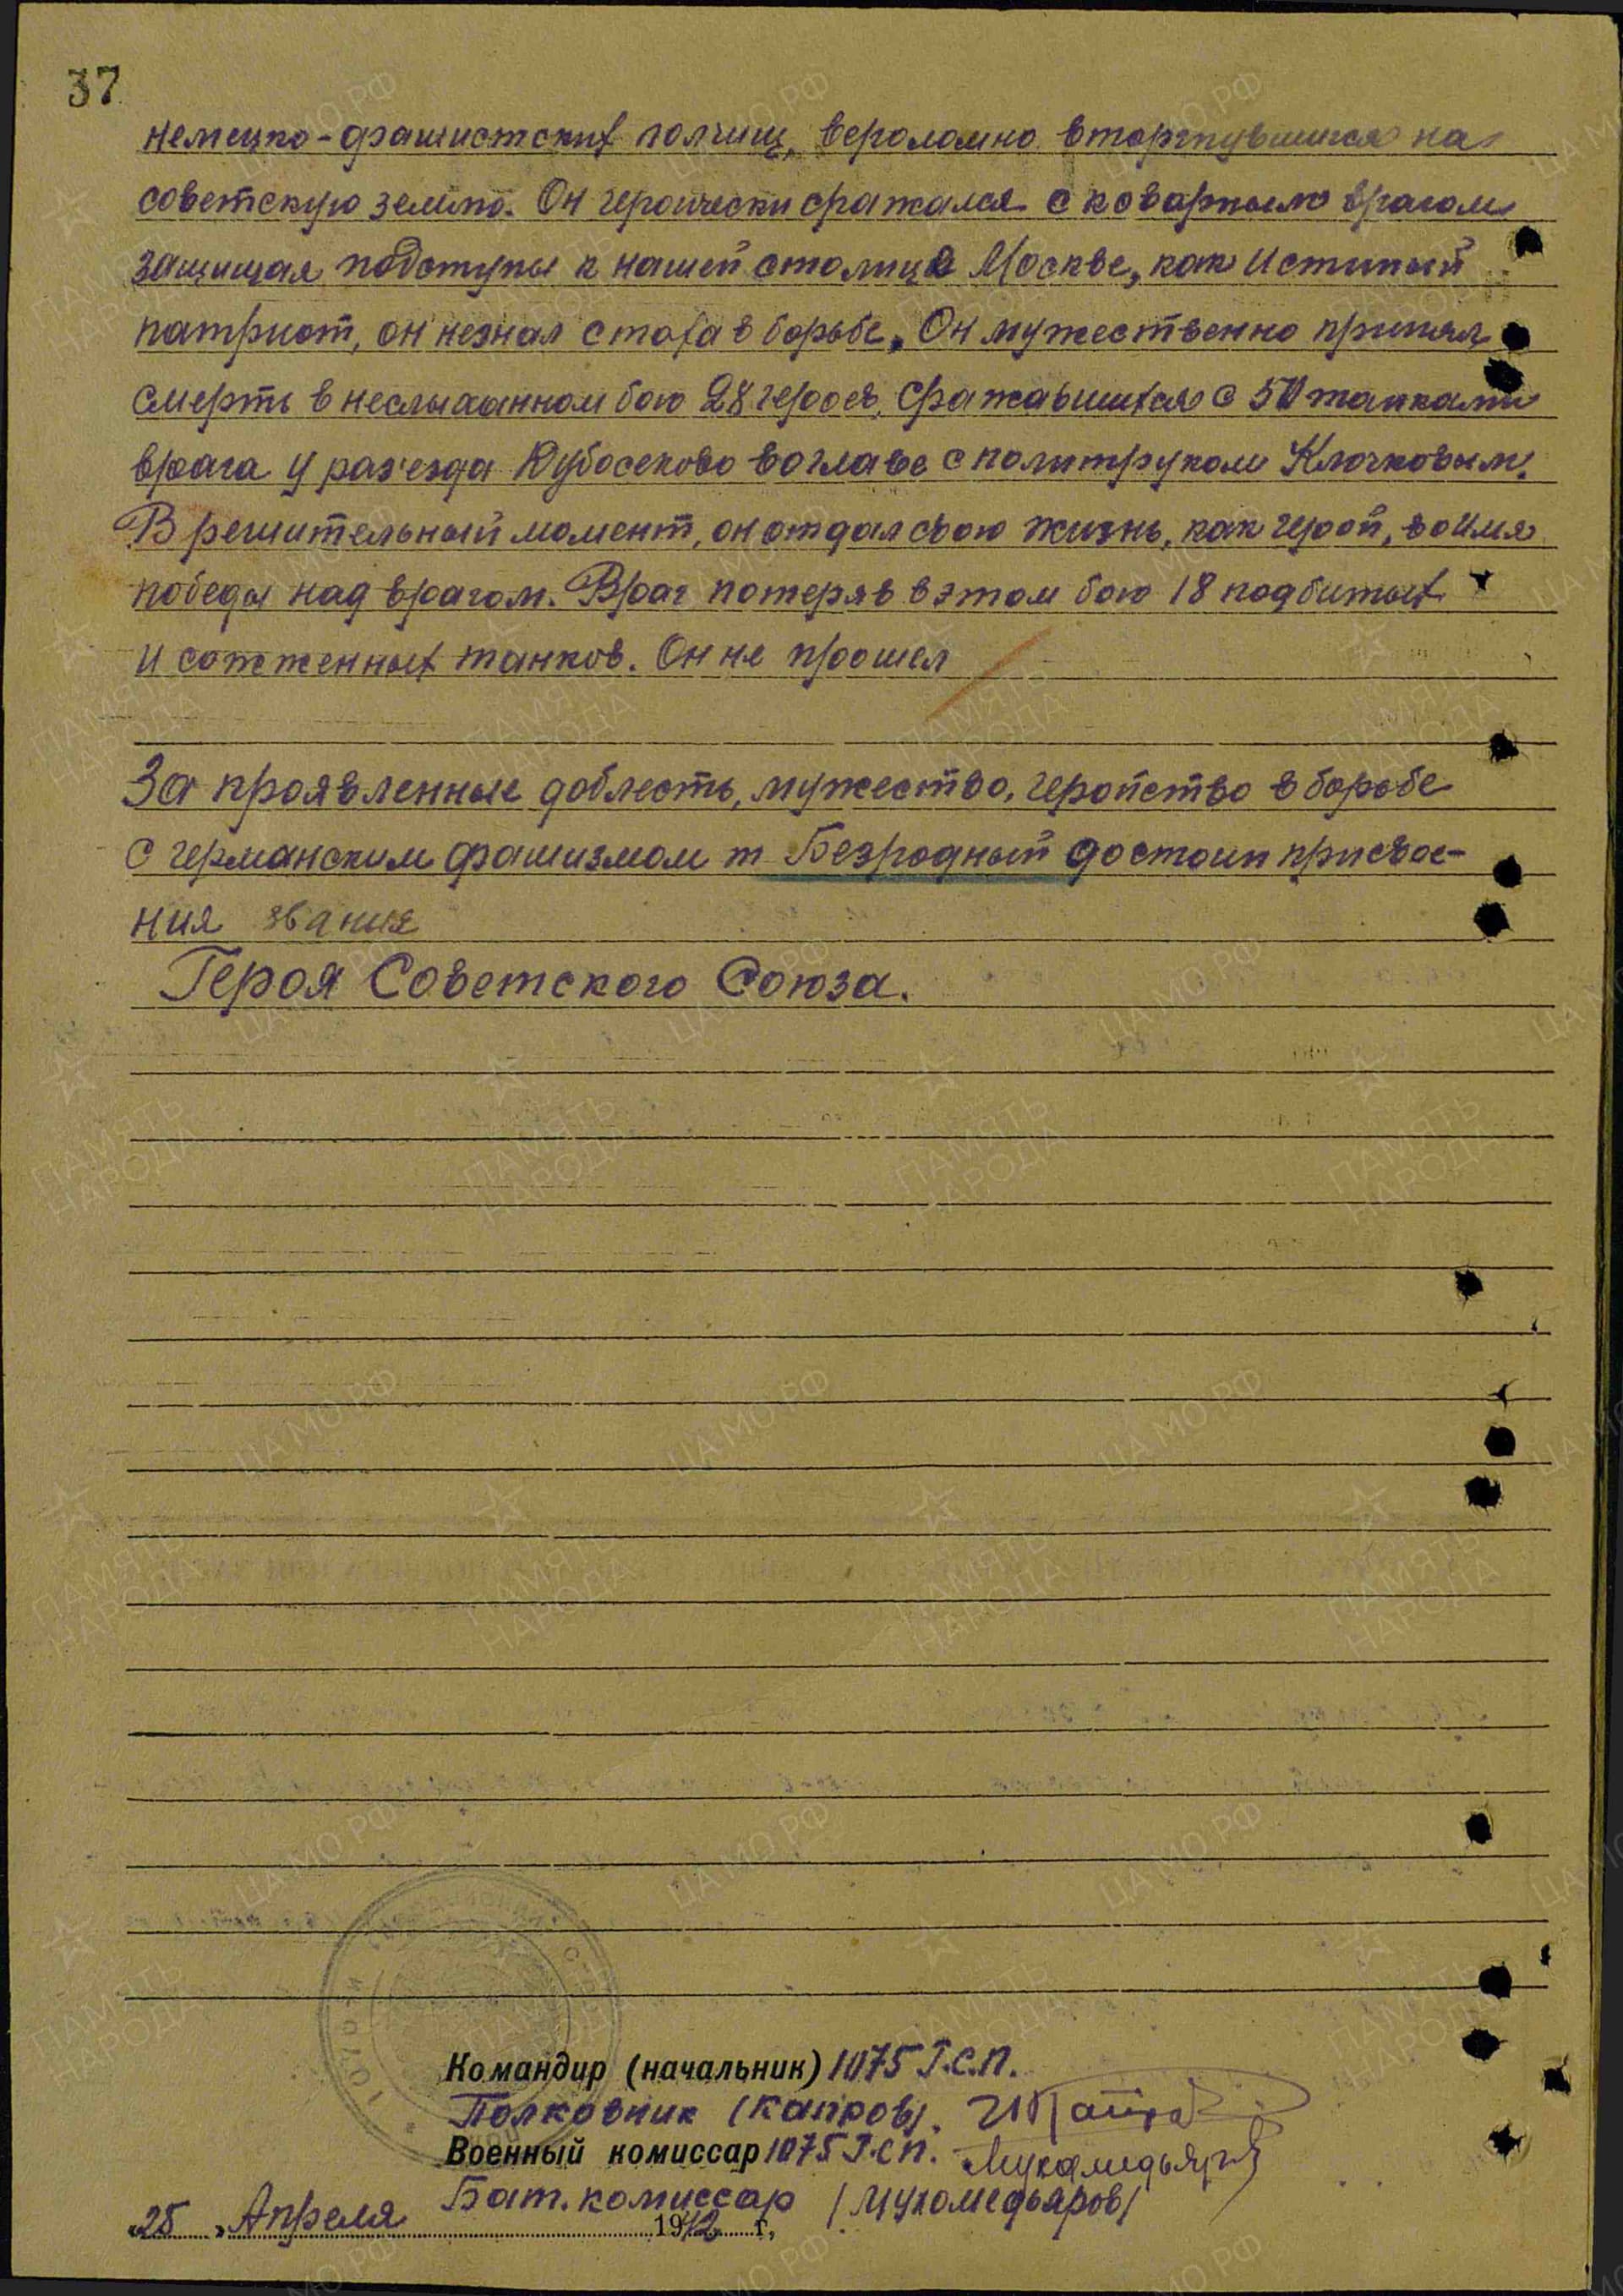 37
немецко-фашистских полчищ, вероломно вторгнувшихся на
советскую землю. Он героически сражался с коварным врагом
защищая подступы к нашей столице Москве, как истиный
патриот, он незнал стаха в борьбе. Он мужественно принял
смерть в неслыханном бою 28 героев, сражавшихся с 50 танками
врага у раз'езда Дубосеково воглаве с политруком Клочковым.
В решительный момент, он отдал свою жизнь, как герой, во имя
победы над врагом. Враг потеряв в этом бою 18 подбитых
и сожженных танков. Он не прошел
За проявленные доблесть, мужество, геройство в борьбе
с германским фашизмом т Безродный достоин присвое-
ния звания
Героя Советского Союза.
Командир (начальник) 1075 Г.С.П.
Полковник (Капров).
Военный комиссар 1075 Г.С.П. Мухамедьяров
Бат. комиссар /Мухомедьяров/
"25" Апреля 1942 г.
ПАМЯТЬ НАРОДА
ЦА МО РФ